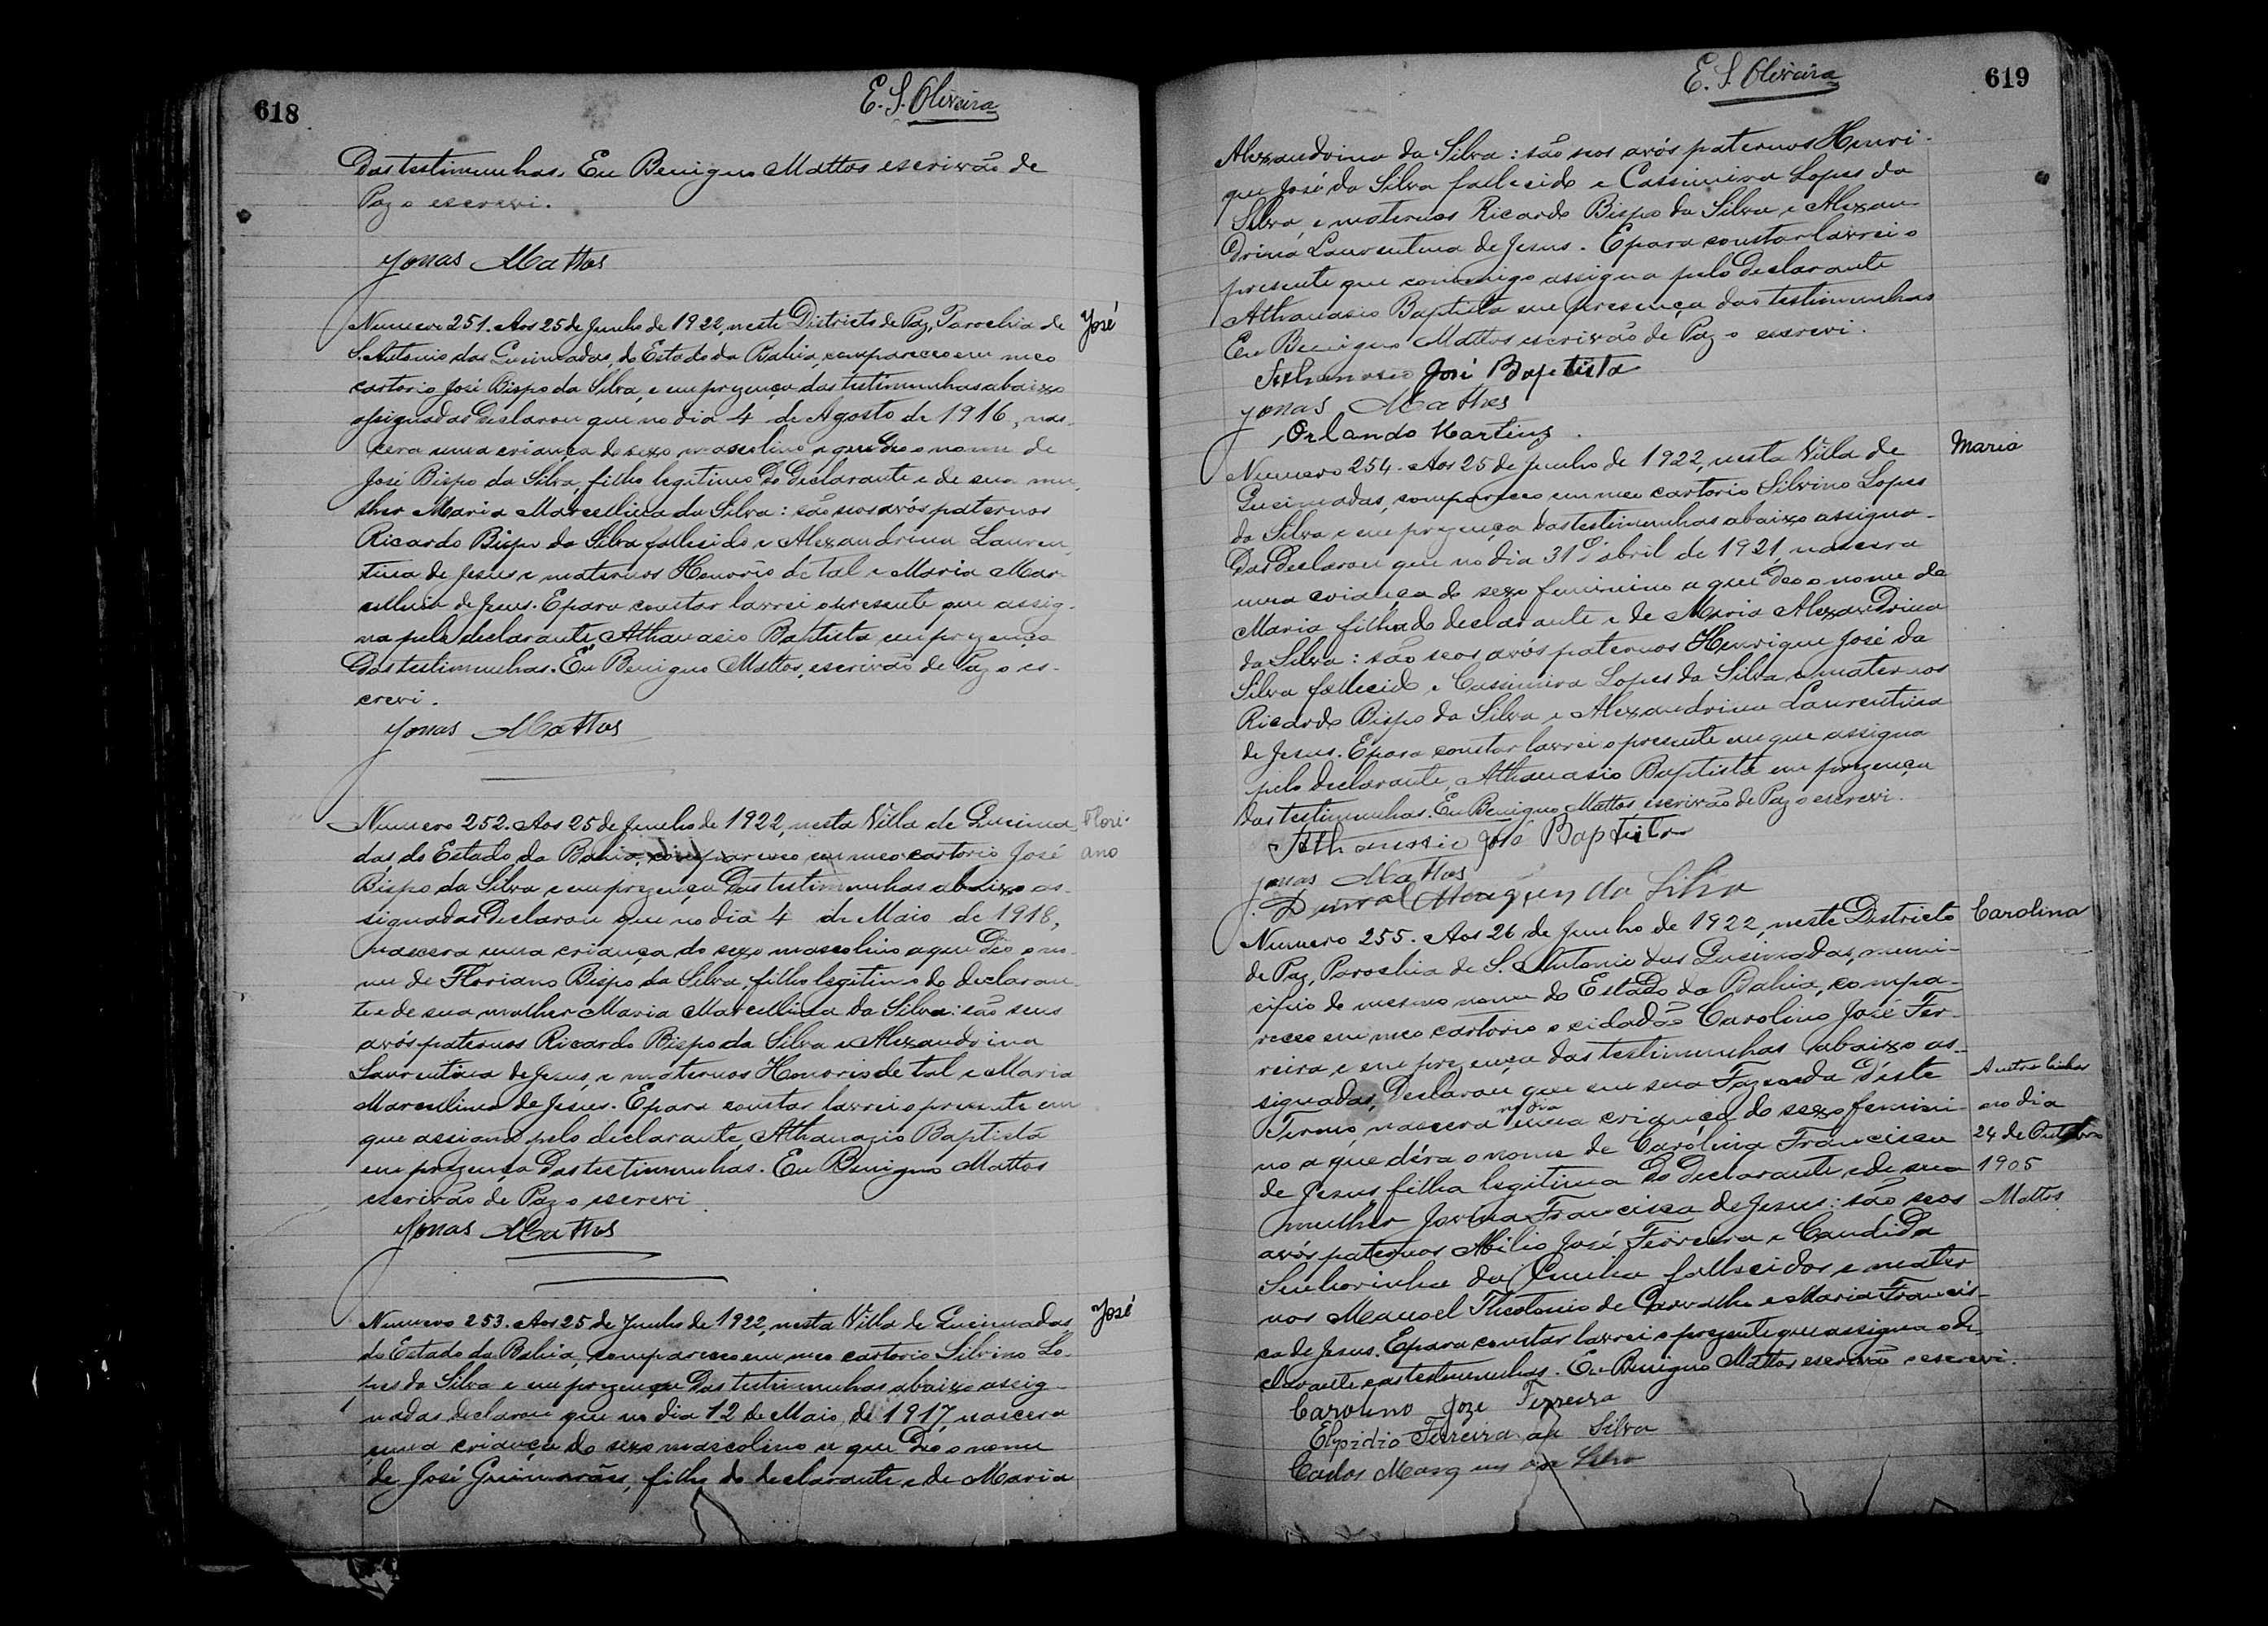 618
E. S. Oliveira
Das testimunhas. Eu Benigno Mattos escrivão de
Paz o escrevi.
Jonas Mattos
Numero 251. Aos 25 de Junho de 1922, neste Districto de Paz, Parochia de
S. Antonio das Queimadas, do Estado da Bahia, compareceo em meo
cartorio José Bispo da Silva, e em prezença das testimunhas abaixo
assignadas Declarou que no dia 4 de Agosto de 1916, nas-
cera uma criança do sexo mascolino a que Deo o nome de
José Bispo da Silva, filho legitimo do Declarante e de sua mu-
lher Maria Marcellina da Silva: são seos avós paternos
Ricardo Bispo da Silva fallecido e Alexandrina Lauren-
tina de Jesus e maternos Honorio de tal e Maria Mar-
cellina de Jesus. E para constar lavrei o presente que assig-
na pelo declarante Athanasio Baptista em prezença
Das testimunhas. Eu Benigno Mattos, escrivão de Paz o es-
crevi.
Jonas Mattos
José
Numero 252. Aos 25 de Junho de 1922, nesta Villa de Queima-
das do Estado da Bahia, compareceo em meo cartorio José
Bispo da Silva, e em prezença Das testimunhas abaixo as-
signadas Declarou que no dia 4 de Maio de 1918,
nascera uma criança do sexo mascolino a que Deo o no-
me de Floriano Bispo da Silva, filho legitimo do declaran-
te e de sua molher Maria Marcellina da Silva: são seus
avós paternos Ricardo Bispo da Silva e Alexandrina
Laurentina de Jesus, e maternos Honorio de tal e Maria
Marcellina de Jesus. E para constar lavrei o presente em
que assigna pelo declarante, Athanazio Baptista
em prezença Das testimunhas. Eu Benigno Mattos
escrivão de Paz o escrevi
Jonas Mattos
Flori-
ano
Numero 253. Aos 25 de Junho de 1922, nesta Villa de Queimadas,
do Estado da Bahia, compareceo em meo cartorio Silvino Lo-
pes da Silva e em prezença Das testimunhas abaixo assig-
nadas declarou que no dia 12 de Maio de 1917, nascera
uma criança do sexo mascolino a que Deo o nome
de José Guimarães, filho do declarante e de Maria
José
619
E. S. Oliveira
Alexandrina da Silva: são seos avós paternos Henri-
que José da Silva fallecido e Cassimira Lopes da
Silva, e maternos Ricardo Bispo da Silva e Alexan-
Drina Laurentina de Jesus. E para constar lavrei o
presente que commigo assigna pelo Declarante
Athanasio Baptista em presença das testimunhas
Eu Benigno Mattos escrivão de Paz o escrevi.
Athanasio José Baptista
Jonas Mattos
Orlando Martins
Numero 254. Aos 25 de Junho de 1922, nesta Villa de
Queimadas, compareceo em meo cartorio Silvino Lopes
da Silva e em prezença das testimunhas abaixo assigna-
Das Declarou que no dia 31 d'abril de 1921, nascera
uma criança do sexo feminino a que Deo o nome de
Maria filha do declarante e de Maria Alexandrina
da Silva: são seos avós paternos Henrique José da
Silva fallecido e Cassimira Lopes da Silva e maternos
Ricardo Bispo da Silva e Alexandrina Laurentina
de Jesus. E para constar lavrei o presente em que assigna
pelo declarante, Athanasio Baptista em prezença
Das testimunhas. Eu Benigno Mattos escrivão de Paz o escrevi.
Athanasio José Baptista
Jonas Mattos
Durval Marques da Silva
Maria
Numero 255. Aos 26 de Junho de 1922, neste Districto
de Paz, Parochia de S. Antonio das Queimadas, muni-
cipio do mesmo nome do Estado da Bahia, compa-
receo em meo cartorio o cidadão Carolino José Fer-
reira e em prezença das testimunhas abaixo as-
signadas, Declarou que em sua Fazenda d'este
Termo, nascera no dia uma criança do sexo femini-
no a que déra o nome de Carolina Francisca
de Jesus filha legitima do Declarante e de sua
mulher Jovina Francisca de Jesus: são seos
avós paternos Abilio José Ferreira e Candida
Senhorinha da Cunha fallecidos e mater-
nos Manoel Theotonio de Carvalho e Maria Francis-
ca de Jesus. E para constar lavrei o prezente que assigna o de-
clarante e as testimunhas. Eu Benigno Mattos escrivão o escrevi.
Carolino Joze Ferreira
Elpidio Ferreira da Silva
Carlos Marques da Silva
Carolina
no dia
24 de Outubro
1905
Mattos